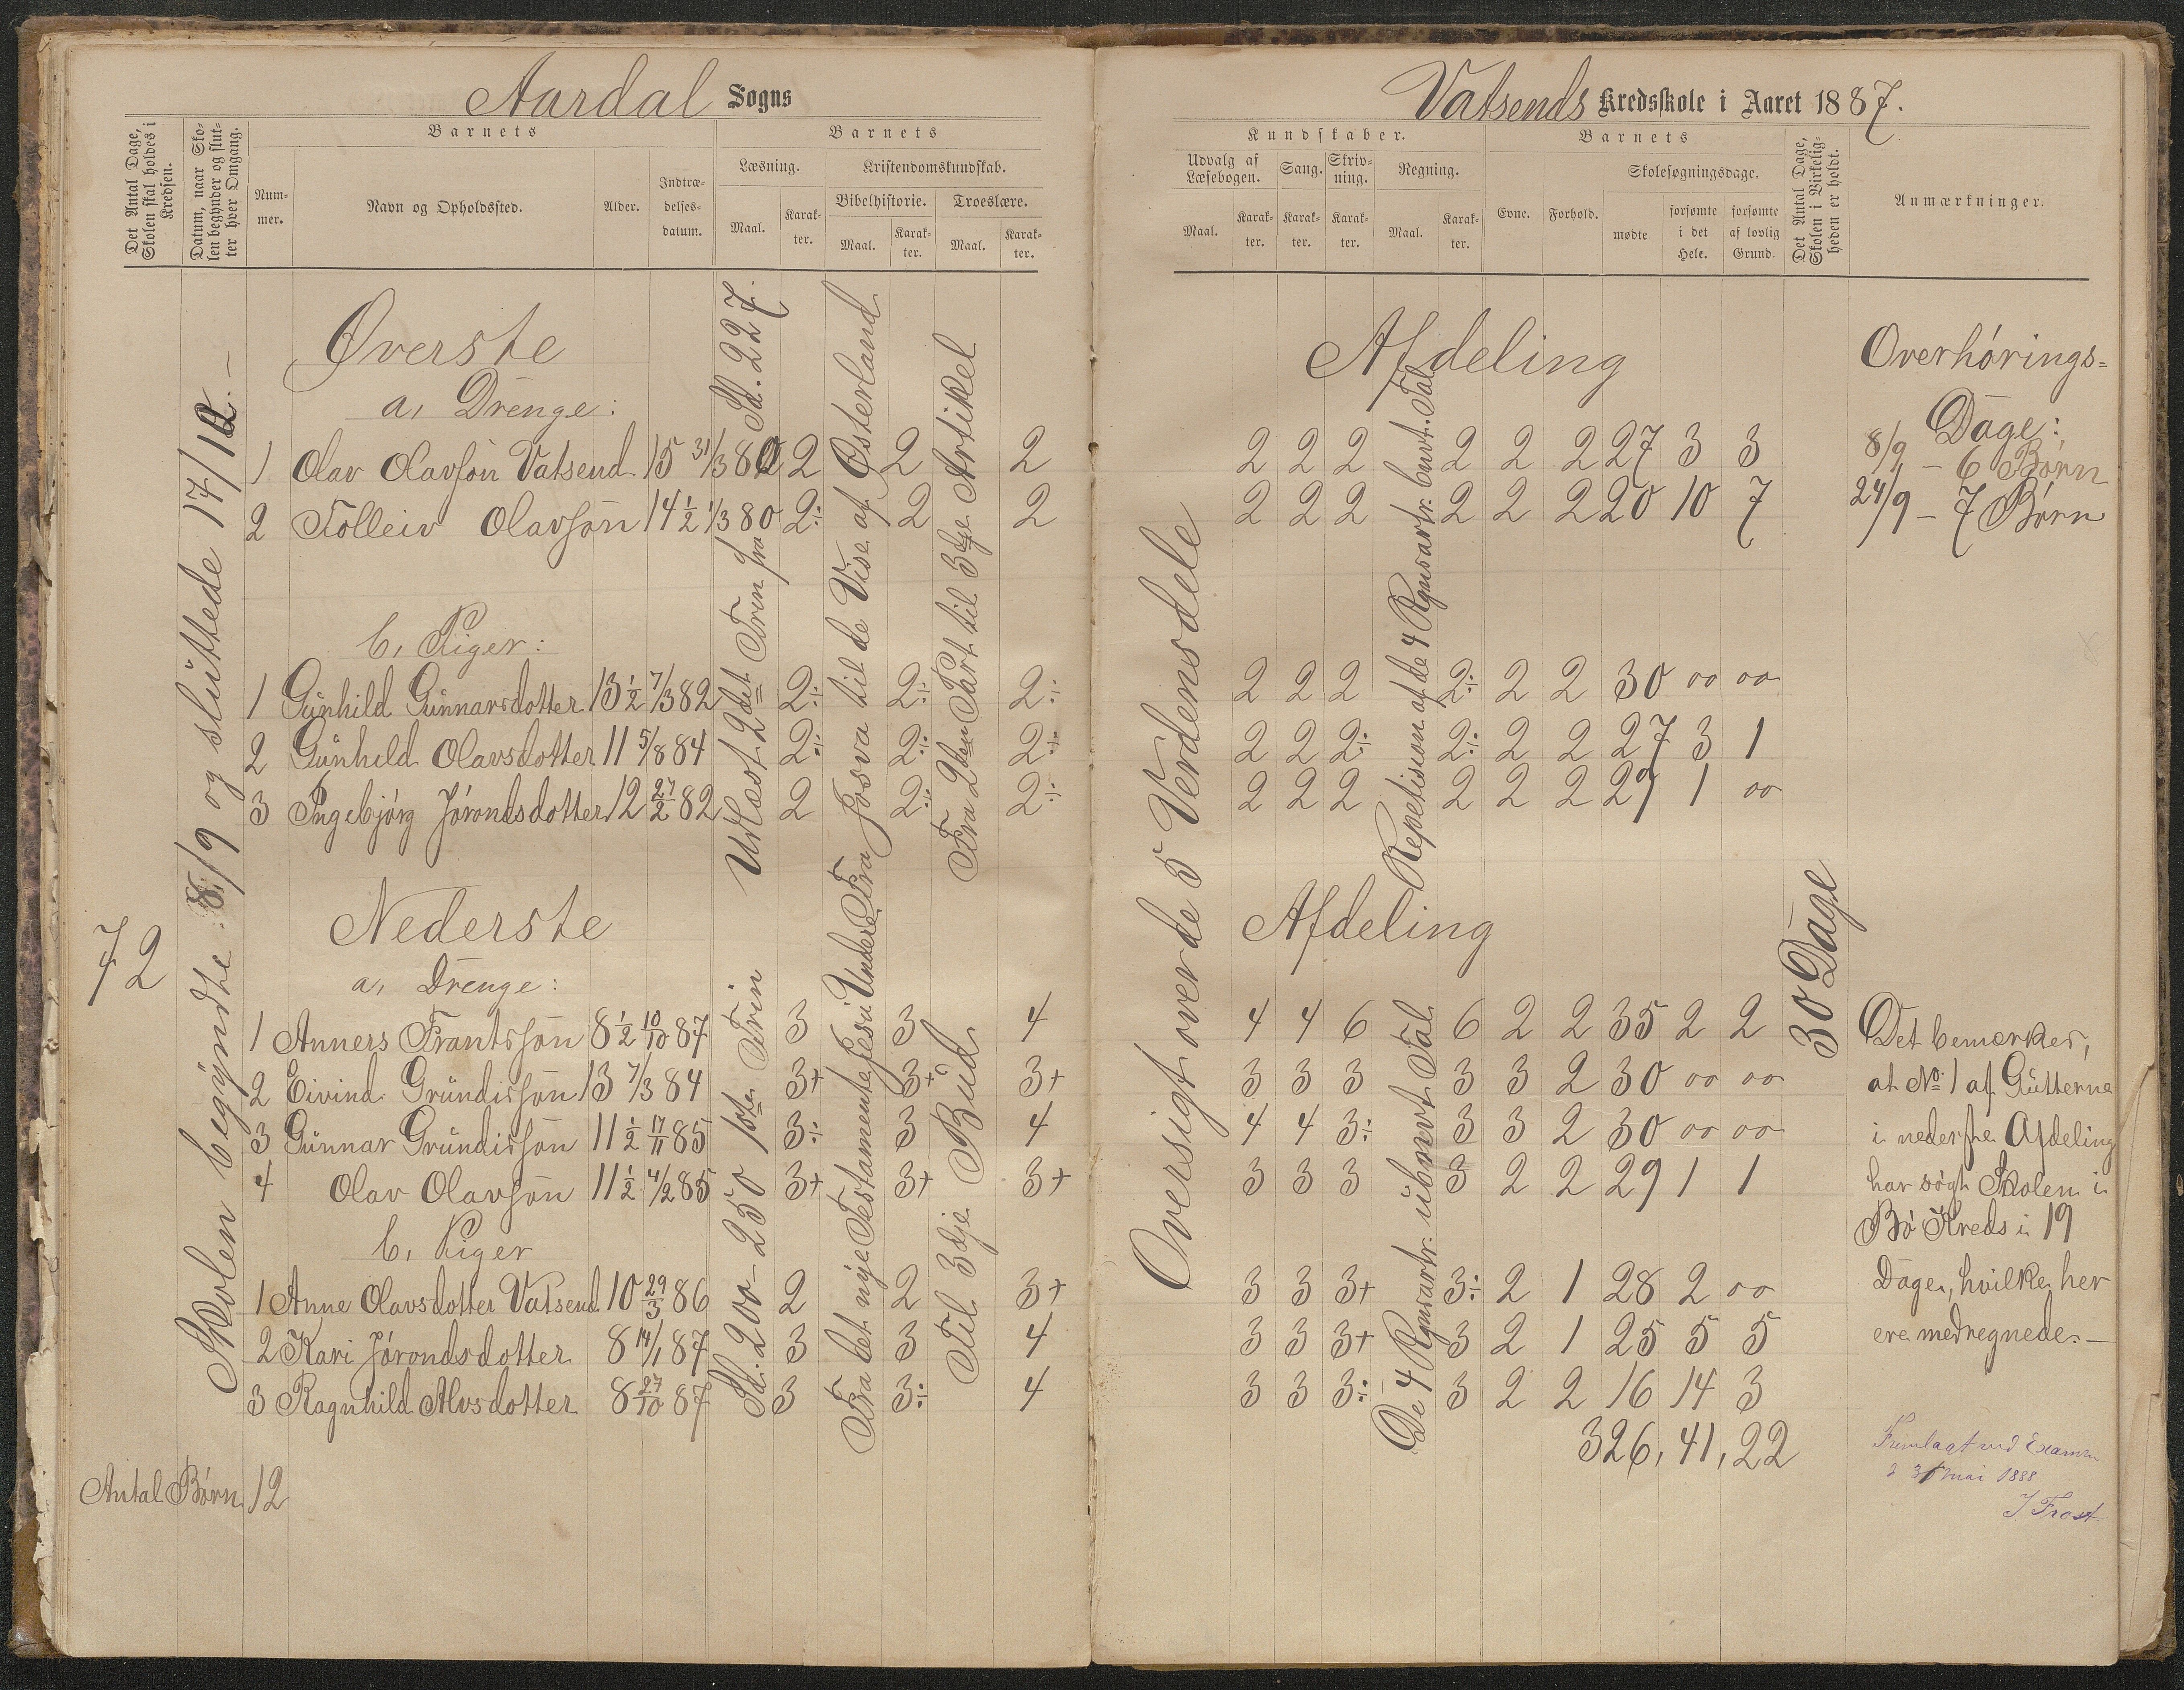 Aardal Sogns
Det Antal Dage, Skolen skal holdes i Kredsen.
Datum, naar Skolen begynder og slutter hver Omgang.
Barnets
Nummer.
Navn og Opholdssted.
Alder.
Indtrædelsesdatum.
Barnets
Læsning.
Maal.
Karakter.
Kristendomskundskab.
Bibelhistorie.
Maal.
Karakter.
Troeslære.
Maal.
Karakter.
72
Skolen begyndte 8/9 og sluttede 17/12. –
Udlæst 2det Trin fra Sd. 227.
Fra Josva til de Vise af Østerland
Fra 2den Part til 3die Artikel
Øverste
a, Drenge:
1 Olav Olavsøn Vatsend 15 31/3 80 2 2 2
2 Tolleiv Olavsøn 14 1/2 1/3 80 2÷ 2 2
b, Piger:
1 Gunhild Gunnarsdotter 13 1/2 7/3 82 2÷ 2÷ 2÷
2 Gunhild Olavsdotter 11 5/8 84 2÷ 2÷ 2÷
3 Ingebjörg Jörondsdotter 12 27/2 82 2 2÷ 2÷
Nederste
a, Drenge:
Sd. 200 – 250 1ste Trin
Fra det nye Testamente Jesu Undere
Til 3dje Bud
1 Anners Frantssøn 8 1/2 10/10 87 3 3 4
2 Eivind Grundissøn 13 7/3 84 3+ 3+ 3+
3 Gunnar Grundissøn 11 1/2 17/11 85 3÷ 3 4
4 Olav Olavsøn 11 1/2 4/2 85 3+ 3+ 3+
b, Piger
1 Anne Olavsdotter Vatsend 10 29/3 86 2 2 3+
2 Kari Jörondsdotter 8 14/1 87 3 3 4
3 Ragnhild Alvsdotter 8 27/10 87 3 3÷ 4
Antal Børn 12
Vatsends Kredsskole i Aaret 1887.
Kundskaber.
Udvalg af Læsebogen.
Maal.
Karakter.
Sang.
Karakter.
Skrivning.
Karakter.
Regning.
Maal.
Karakter.
Barnets
Evne.
Forhold.
Skolesøgningsdage.
mødte
forsømte i det Hele.
forsømte af lovlig Grund.
Det Antal Dage, Skolen i Virkeligheden er holdt.
Anmærkninger.
Oversigt over de 5 Verdensdele
Repetision af de 4 Regnearter. benvt. Tal
30 Dage
Afdeling
2 2 2 2 2 2 27 3 3
2 2 2 2 2 2 20 10 7
2 2 2 2÷ 2 2 30 00 00
2 2 2÷ 2÷ 2 2 27 3 1
2 2 2 2 2 2 29 1 00
Afdeling
De 4 Regnearter. ubnvt Tal
4 4 6 6 2 2 35 2 2
3 3 3 3 3 2 30 00 00
4 4 3÷ 3 3 2 30 00 00
3 3 3 3 2 2 29 1 1
3 3 3+ 3÷ 2 1 28 2 00
3 3 3+ 3 2 1 25 5 5
3 3 3÷ 3 2 2 16 14 3
326, 41, 22
Overhörings=
Dage:
8/9 – 6 Børn
24/9 – 7 Børn
Det bemærkes,
at No 1 af Gutterne
i nederste Afdeling
har søgt Skolen i
Bö Kreds i 19
Dage, hvilke her
ere medregnede. –
Fremlagt ved Examen
d 31 mai 1888
J. Frost